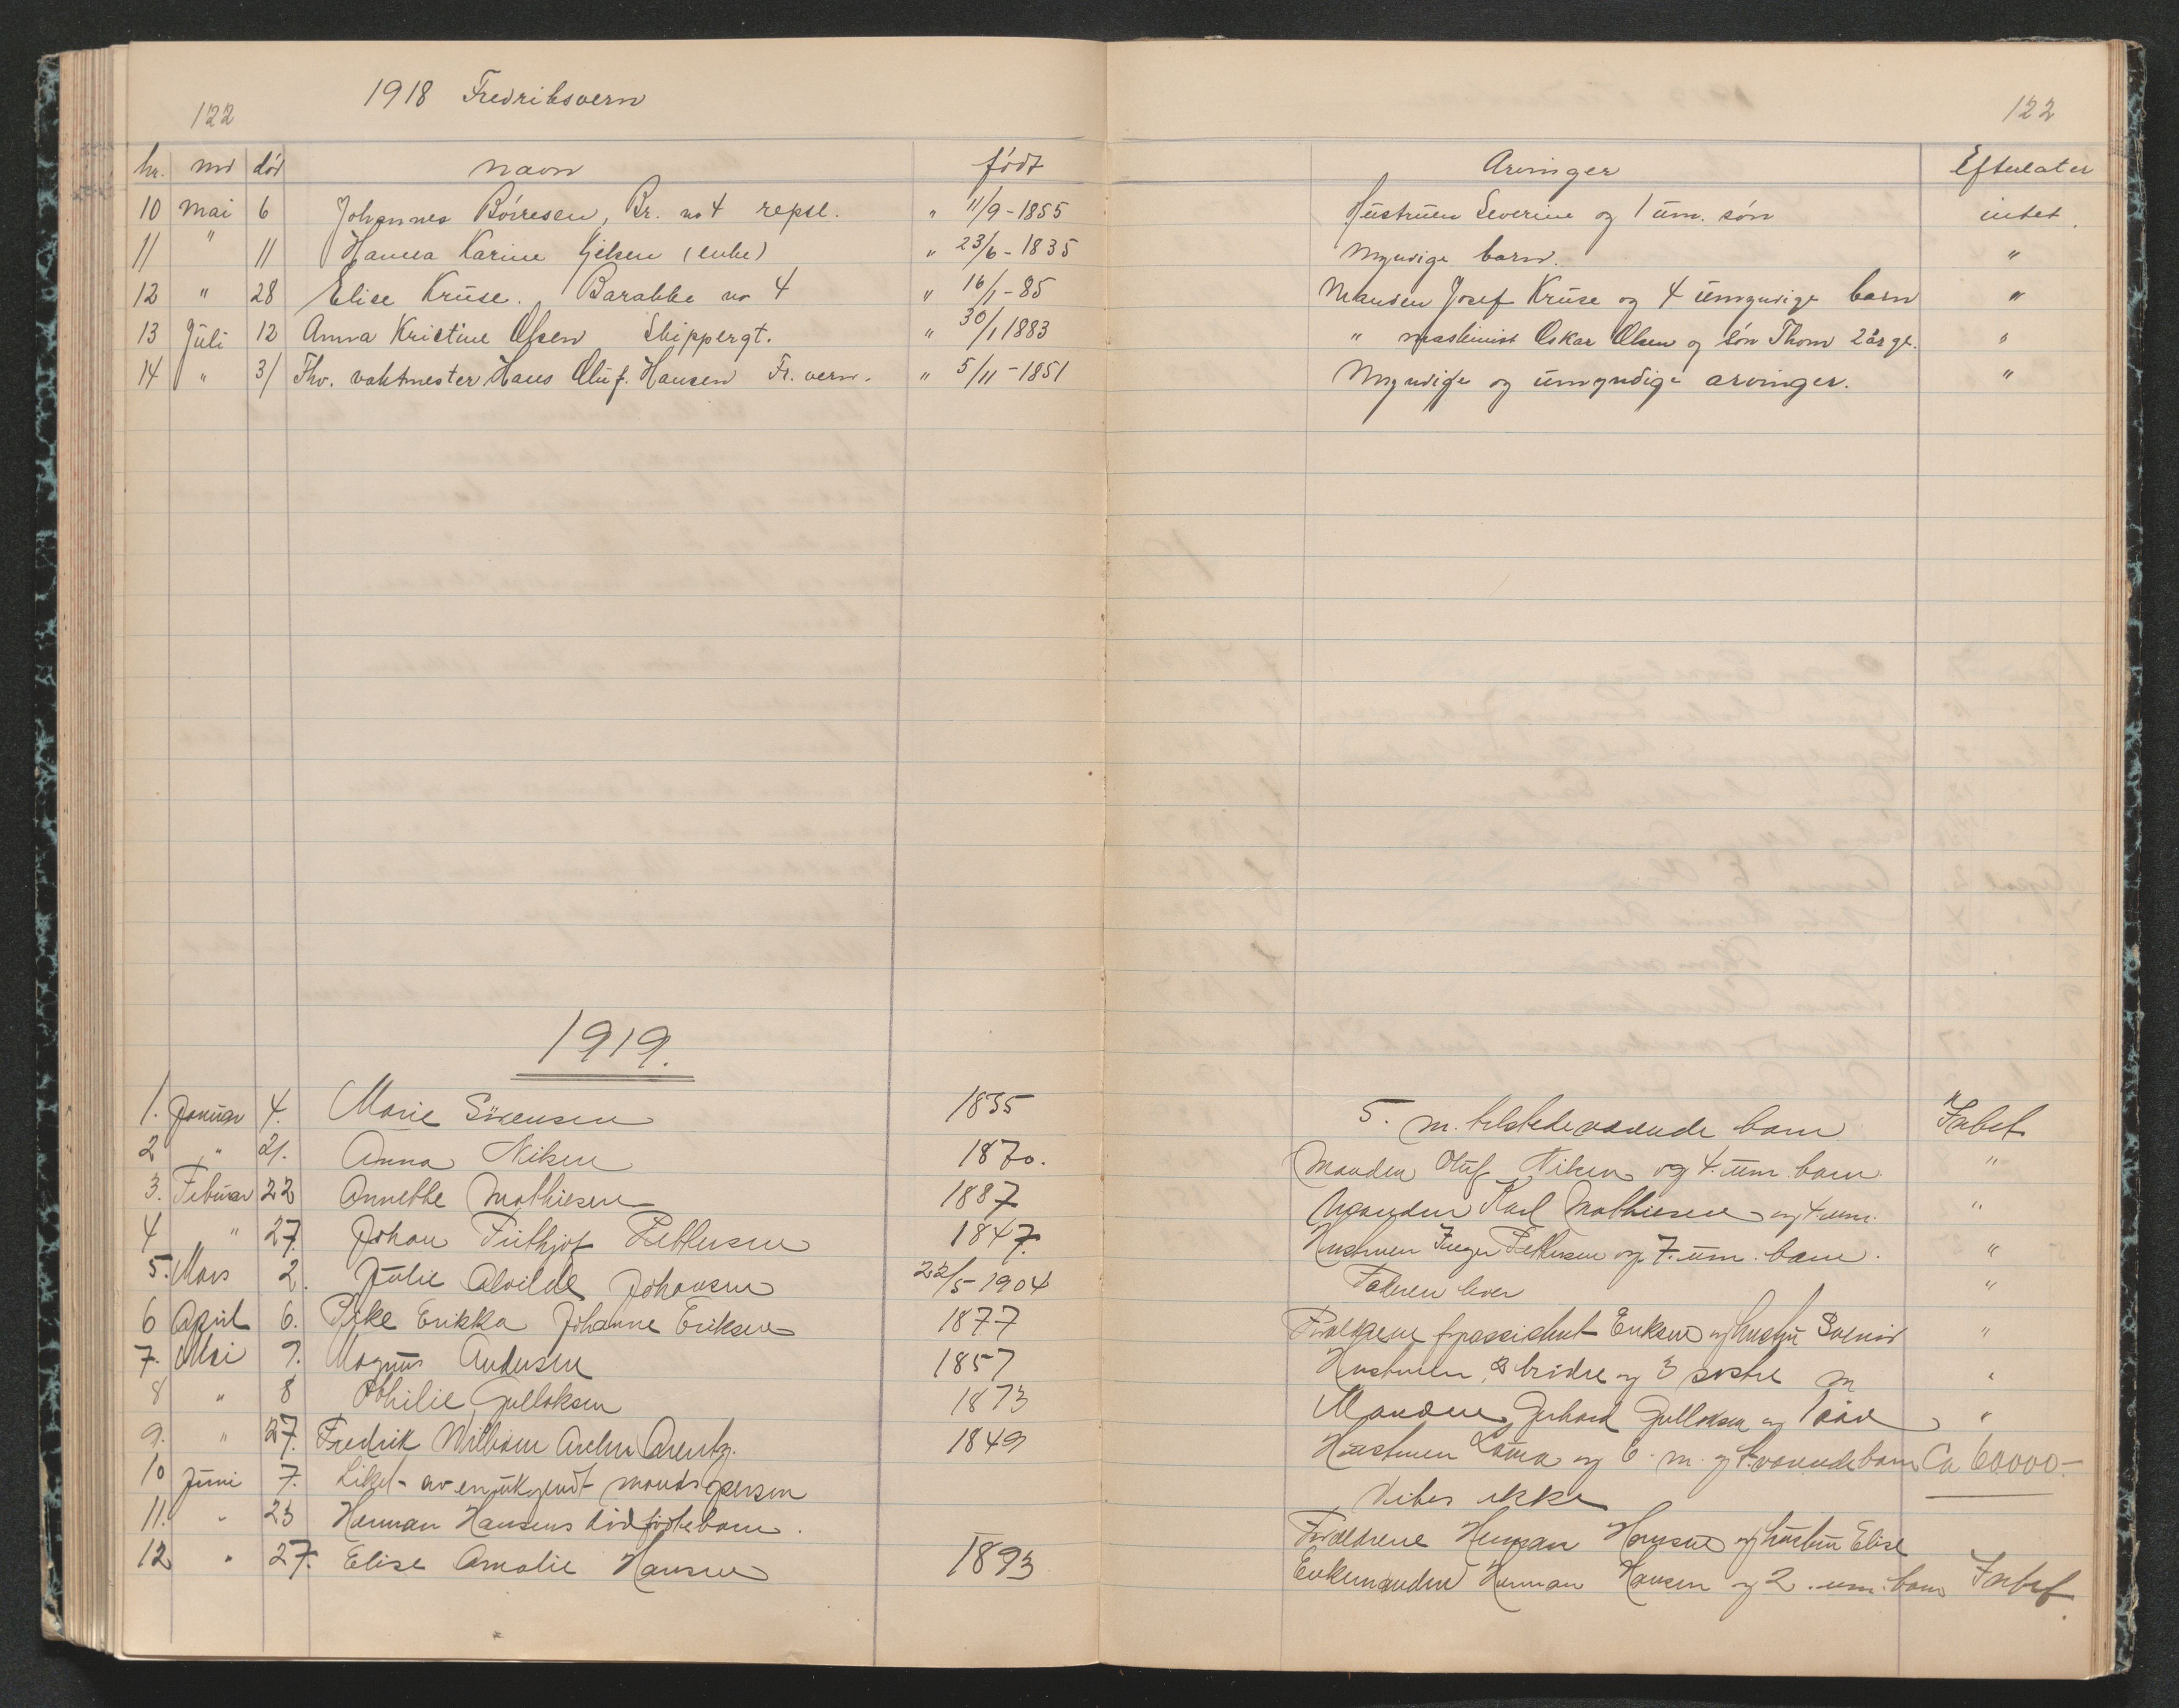 1918 Fredriksvern
122
122
nr. md død navn født Arvinger Efterlater
10 Mai 6 Johannes Börresen, Br. no 4 repsl. " 11/9-1855 Hustruen Severine og 1 um. søn intet.
11 " 11 Hanna Karine (enke) " 23/6-1835 Myndige barn. "
12 " 28 Elise Kruse. Barakke no 4 " 16/1-85 Manden Josef Kruse og 4 umyndige barn "
13 Juli 12 Anna Kristine Olsen Skippergt. " 30/1 1883 " maskinist Oskar Olsen og søn Thom 2 år gl. "
14 " 31 Fhv. vaktmester Haus Oluf Hansen Fr. vern. " 5/11-1851 Myndige og umyndige arvinger. "
1919.
1. Januar 4. Marie Sörensen 1835 5. m. tilstedeværende barn Intet
2 " 21. Anna Nilsen 1870. Manden Oluf Nilsen og 4. um. barn "
3. Februar 22 Annethe Mathiesen 1887 Manden Karl Mathiesen og 4 um. "
4 " 27. Johan Frithjof Pettersen 1847. Hustruen Inger Pettersen og 7. um. barn. "
5. Mars 2. Julie Alvilde Johansen 22/5-1904 Faderen lever "
6 April 6. Pike Erikka Johanne Eriksen 1877 Forældrene Eriksen og hustru "
7. Mai 7. Magnus Andersen 1857 Hustruen, brödre og 3 søstre m "
8 " 8 Othilie Gulloksen 1873 Manden Gerhard Gulloksen og "
9. " 27. Fredrik William Arentz. 1849 Hustruen og 6 m. og t. værende barn Ca 60000.-
10 Juni 7. Liket av en ukjendt mandsperson Vites ikke
11. " 23 Herman Hansens dødfödte barn. Forældrene Herman Hansen og hustru Elise
12 " 27. Elise Amalie Hansen 1893 Enkemanden Herman Hansen og 2. um. barn Intet.